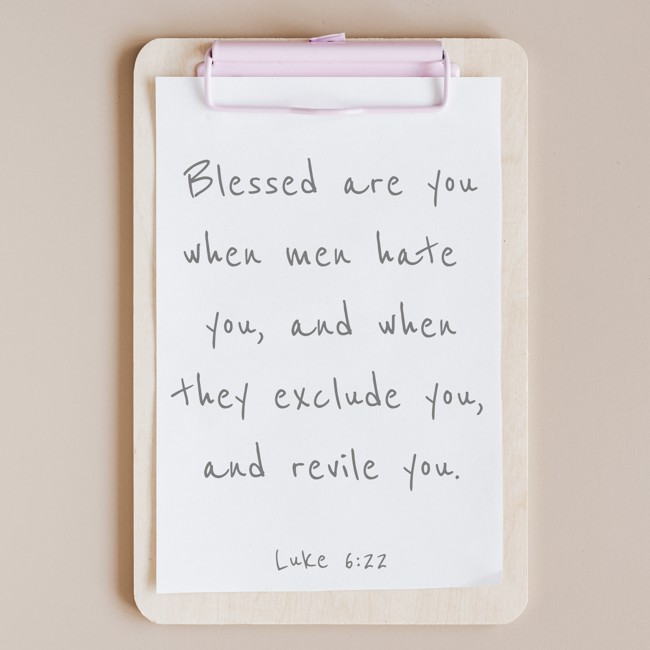 Blessed are you
when men hate
you, and when
they exclude you,
and revile you.
Luke 6:22